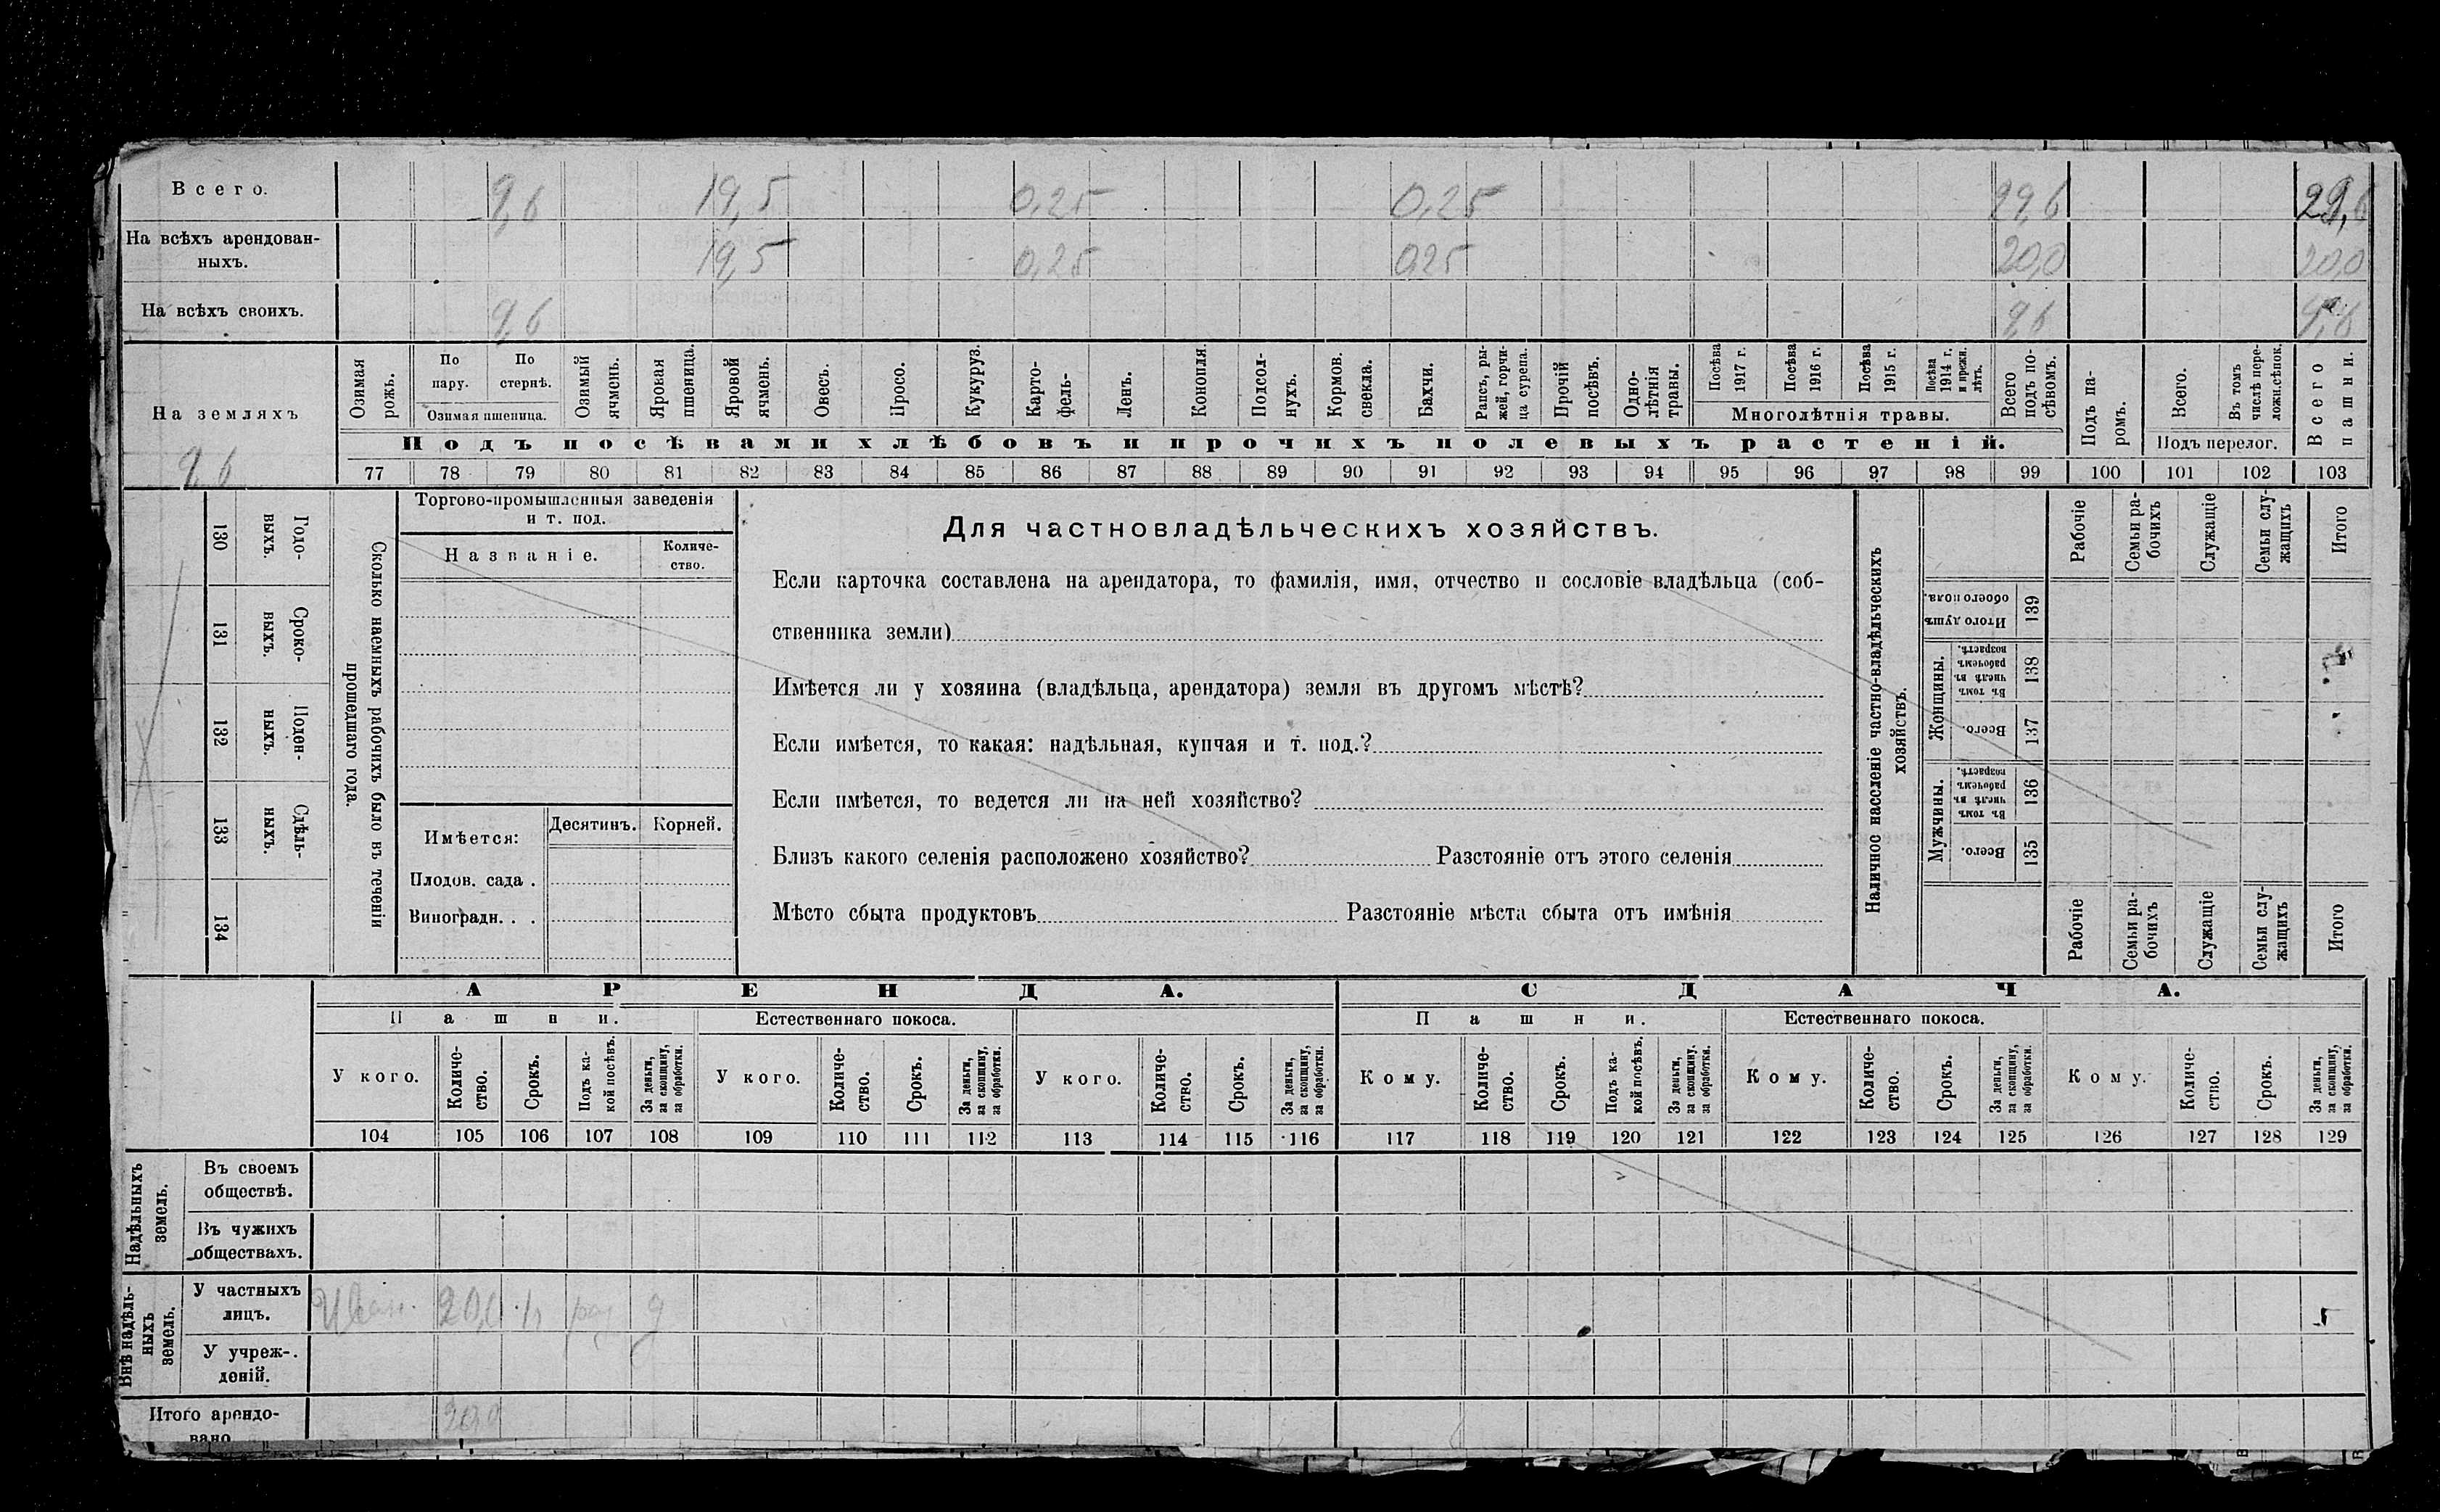 Всего. 9,6 19,5 0,25 0,25 29,6 29,6
На всѣхъ арендован-
ныхъ. 19,5 0,25 0,25 20,0 20,0
На всѣхъ своихъ. 9,6 9,6 9,6
На земляхъ
9,6
Озимая рожь.
По пару.
По стернѣ.
Озимая пшеница.
Озимый ячмень.
Яровая пшеница.
Яровой ячмень.
Овесъ.
Просо.
Кукуруз.
Карто-
фель-
Ленъ.
Конопля.
Подсол-
нухъ.
Кормов. свекла.
Бахчи.
Рапсъ, ры-
жей, горчи-
ца сурепа.
Прочій посѣвъ.
Одно-
лѣтнія травы.
Посѣва 1917 г.
Посѣва 1916 г.
Посѣва 1915 г.
Посѣва 1914 г. и прежн. лѣтъ.
Многолѣтнія травы.
Всего подъ по-
сѣвомъ.
Подъ посѣвами хлѣбовъ и прочихъ полевыхъ растеній.
Подъ па-
ромъ.
Всего.
Въ томъ числѣ пере-
ложн.сѣнок.
Подъ перелог.
Всего пашни.
77 78 79 80 81 82 83 84 85 86 87 88 89 90 91 92 93 94 95 96 97 98 99 100 101 102 103
130 Годо-
выхъ.
131 Сроко-
выхъ.
132 Поден-
ныхъ.
133 Сдѣль-
ныхъ.
134
Сколько наемныхъ рабочихъ было въ теченіи
прошедшаго года.
Торгово-промышленныя заведенія
и т. под.
Названіе. Количе-
ство.
Имѣется: Десятинъ. Корней.
Плодов. сада .
Виноградн. . .
Для частновладѣльческихъ хозяйствъ.
Если карточка составлена на арендатора, то фамилія, имя, отчество и сословіе владѣльца (соб-
ственника земли)
Имѣется ли у хозяина (владѣльца, арендатора) земля въ другомъ мѣстѣ?
Если имѣется, то какая: надѣльная, купчая и т. под.?
Если имѣется, то ведется ли на ней хозяйство?
Близъ какого селенія расположено хозяйство? Разстояніе отъ этого селенія
Мѣсто сбыта продуктовъ Разстояніе мѣста сбыта отъ имѣнія
Наличное населеніе частно-владѣльческихъ
хозяйствъ.
Рабочіе
Семьи ра-
бочихъ
Служащіе
Семьи слу-
жащихъ
Итого
Итого душъ обоего пола. 139
Женщины.
Въ томъ числѣ въ рабочемъ возрастѣ. 138
Всего. 137
Мужчины.
Въ томъ числѣ въ рабочемъ возрастѣ. 136
Всего. 135
Рабочіе
Семьи ра-
бочихъ
Служащіе
Семьи слу-
жащихъ
Итого
АРЕНДА. СДАЧА.
Пашни. Естественнаго покоса. Пашни. Естественнаго покоса.
У кого.
Количе-
ство.
Срокъ.
Подъ ка-
кой посѣвъ.
За деньги, за скопщину, за обработки.
У кого.
Количе-
ство.
Срокъ.
За деньги, за скопщину, за обработки.
У кого.
Количе-
ство.
Срокъ.
За деньги, за скопщину, за обработки.
Кому.
Количе-
ство.
Срокъ.
Подъ ка-
кой посѣвъ.
За деньги, за скопщину, за обработки.
Кому.
Количе-
ство.
Срокъ.
За деньги, за скопщину, за обработки.
Кому.
Количе-
ство.
Срокъ.
За деньги, за скопщину, за обработки.
104 105 106 107 108 109 110 111 112 113 114 115 116 117 118 119 120 121 122 123 124 125 126 127 128 129
Надѣльныхъ
земель.
Въ своемъ
обществѣ.
Въ чужихъ
обществахъ.
Внѣ надѣль-
ныхъ
земель.
У частныхъ
лицъ. 20,0
У учреж-
деній.
Итого арендо-
вано 20,0